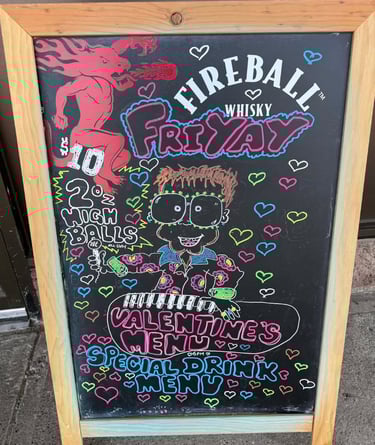 FIREBALL™
WHISKY
FRIYAY
10
2oz
HIGH
BALLS
VALENTINE'S
MENU
SPECIAL DRINK
MENU